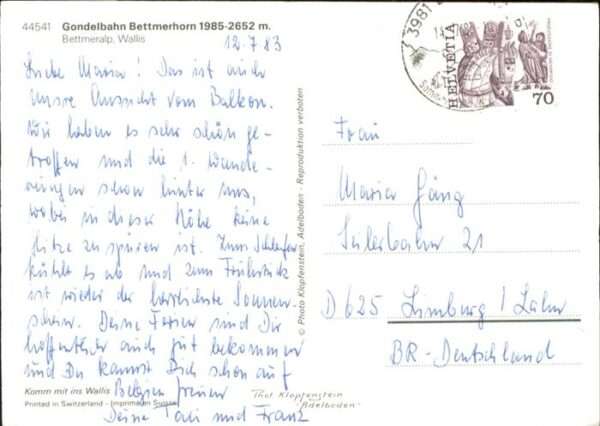 44541 Gondelbahn Bettmerhorn 1985-2652 m.
Bettmeralp, Wallis
12.7.83
Liebe Maria! Das ist auch
unsre Aussicht vom Balkon.
Wir haben es sehr schön ge-
troffen und die 1. Wande-
rungen schon hinter uns,
wobei in dieser Höhe keine
Hitze zu spüren ist. Zum Schlafen
kühlt es ab und zum Frühstück
ist wieder der herrlichste Sonnen-
schein. Deine Ferien sind Dir
hoffentlich auch gut bekommen
und Du kannst Dich schon auf
Belgien freuen
Deine Tali und Franz
Komm mit ins Wallis
Printed in Switzerland - Imprimé en Suisse
Phot Klopfenstein
Adelboden
© Photo Klopfenstein, Adelboden - Reproduktion verboten
3981
HELVETIA
70
Frau
Maria Gäng
Seilerbahn 21
D 625 Limburg / Lahn
BR-Deutschland